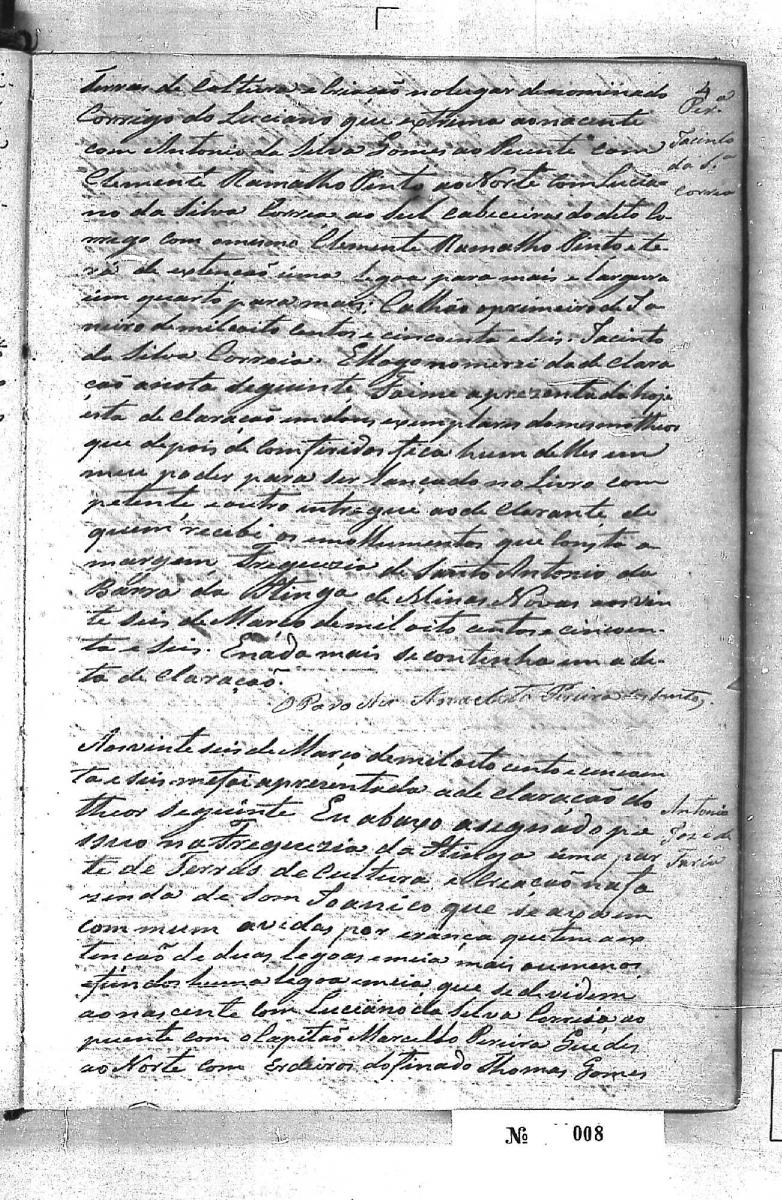 Terras de Cultura e Criacaõ no lugar denominado
Corrigo do Luciano que extrema ao nacente
com Antonio da Silva Gomes ao Puente com
Clemente Ramalho Pinto ao Norte com Lucia-
no da Silva Correa ao Sul Cabeceiras do dito Co-
rrego com o mesmo Clemente Ramalho Pinto e te-
rá de extençaõ uma legoa para mais e largura
um quarto para mais. Calhão o primeiro de Ja-
neiro de mil oito centos e cincoenta e seis. Jacinto
da Silva Correia. E logo no verso da de clara
caõ a nota seguinte Foime aprezentada hoje
ésta de claracaõ em dous exemplares do mesmo theor
que depois de comferidos fica hum delles em
meu poder para ser lançado no Livro com
petente e outro intregue ao de clarante, de
quem recebi os emollumentos que consta a
margem Freguezia de Santo Antonio da
Barra da Itinga de Minas Novas aos vin
te seis de Março de mil oito centos e cincoen-
ta e seis. E nada mais se continha em a di-
ta de claraçaõ.
O Paro Pereira dos Santos
Aos vinte seis de Março de mil oito cento e cincoen
ta e seis me foi aprézentada a de claracaõ do
theor seguinte Eu abaxo asegnado po
ssuo na Freguezia da Itinga uma par
te de Terras de Cultura e Criacaõ na fa
zenda de Dom Joanico que se axa em
commum avidas por erança que tem a ex
tencaõ de duas legoas e meia mais ou menos
e fundos huma legoa e meia que se devidem
ao nascente com Luciano da Silva Correia ao
puente com o Capitaõ Marcello Pereira Guédes
ao Norte com Erdeiros do finado Thomas Gomes
4ª
Per.
Jacinto
da Sª
Correa
Antonio
Joze de
Faria
Nº 008